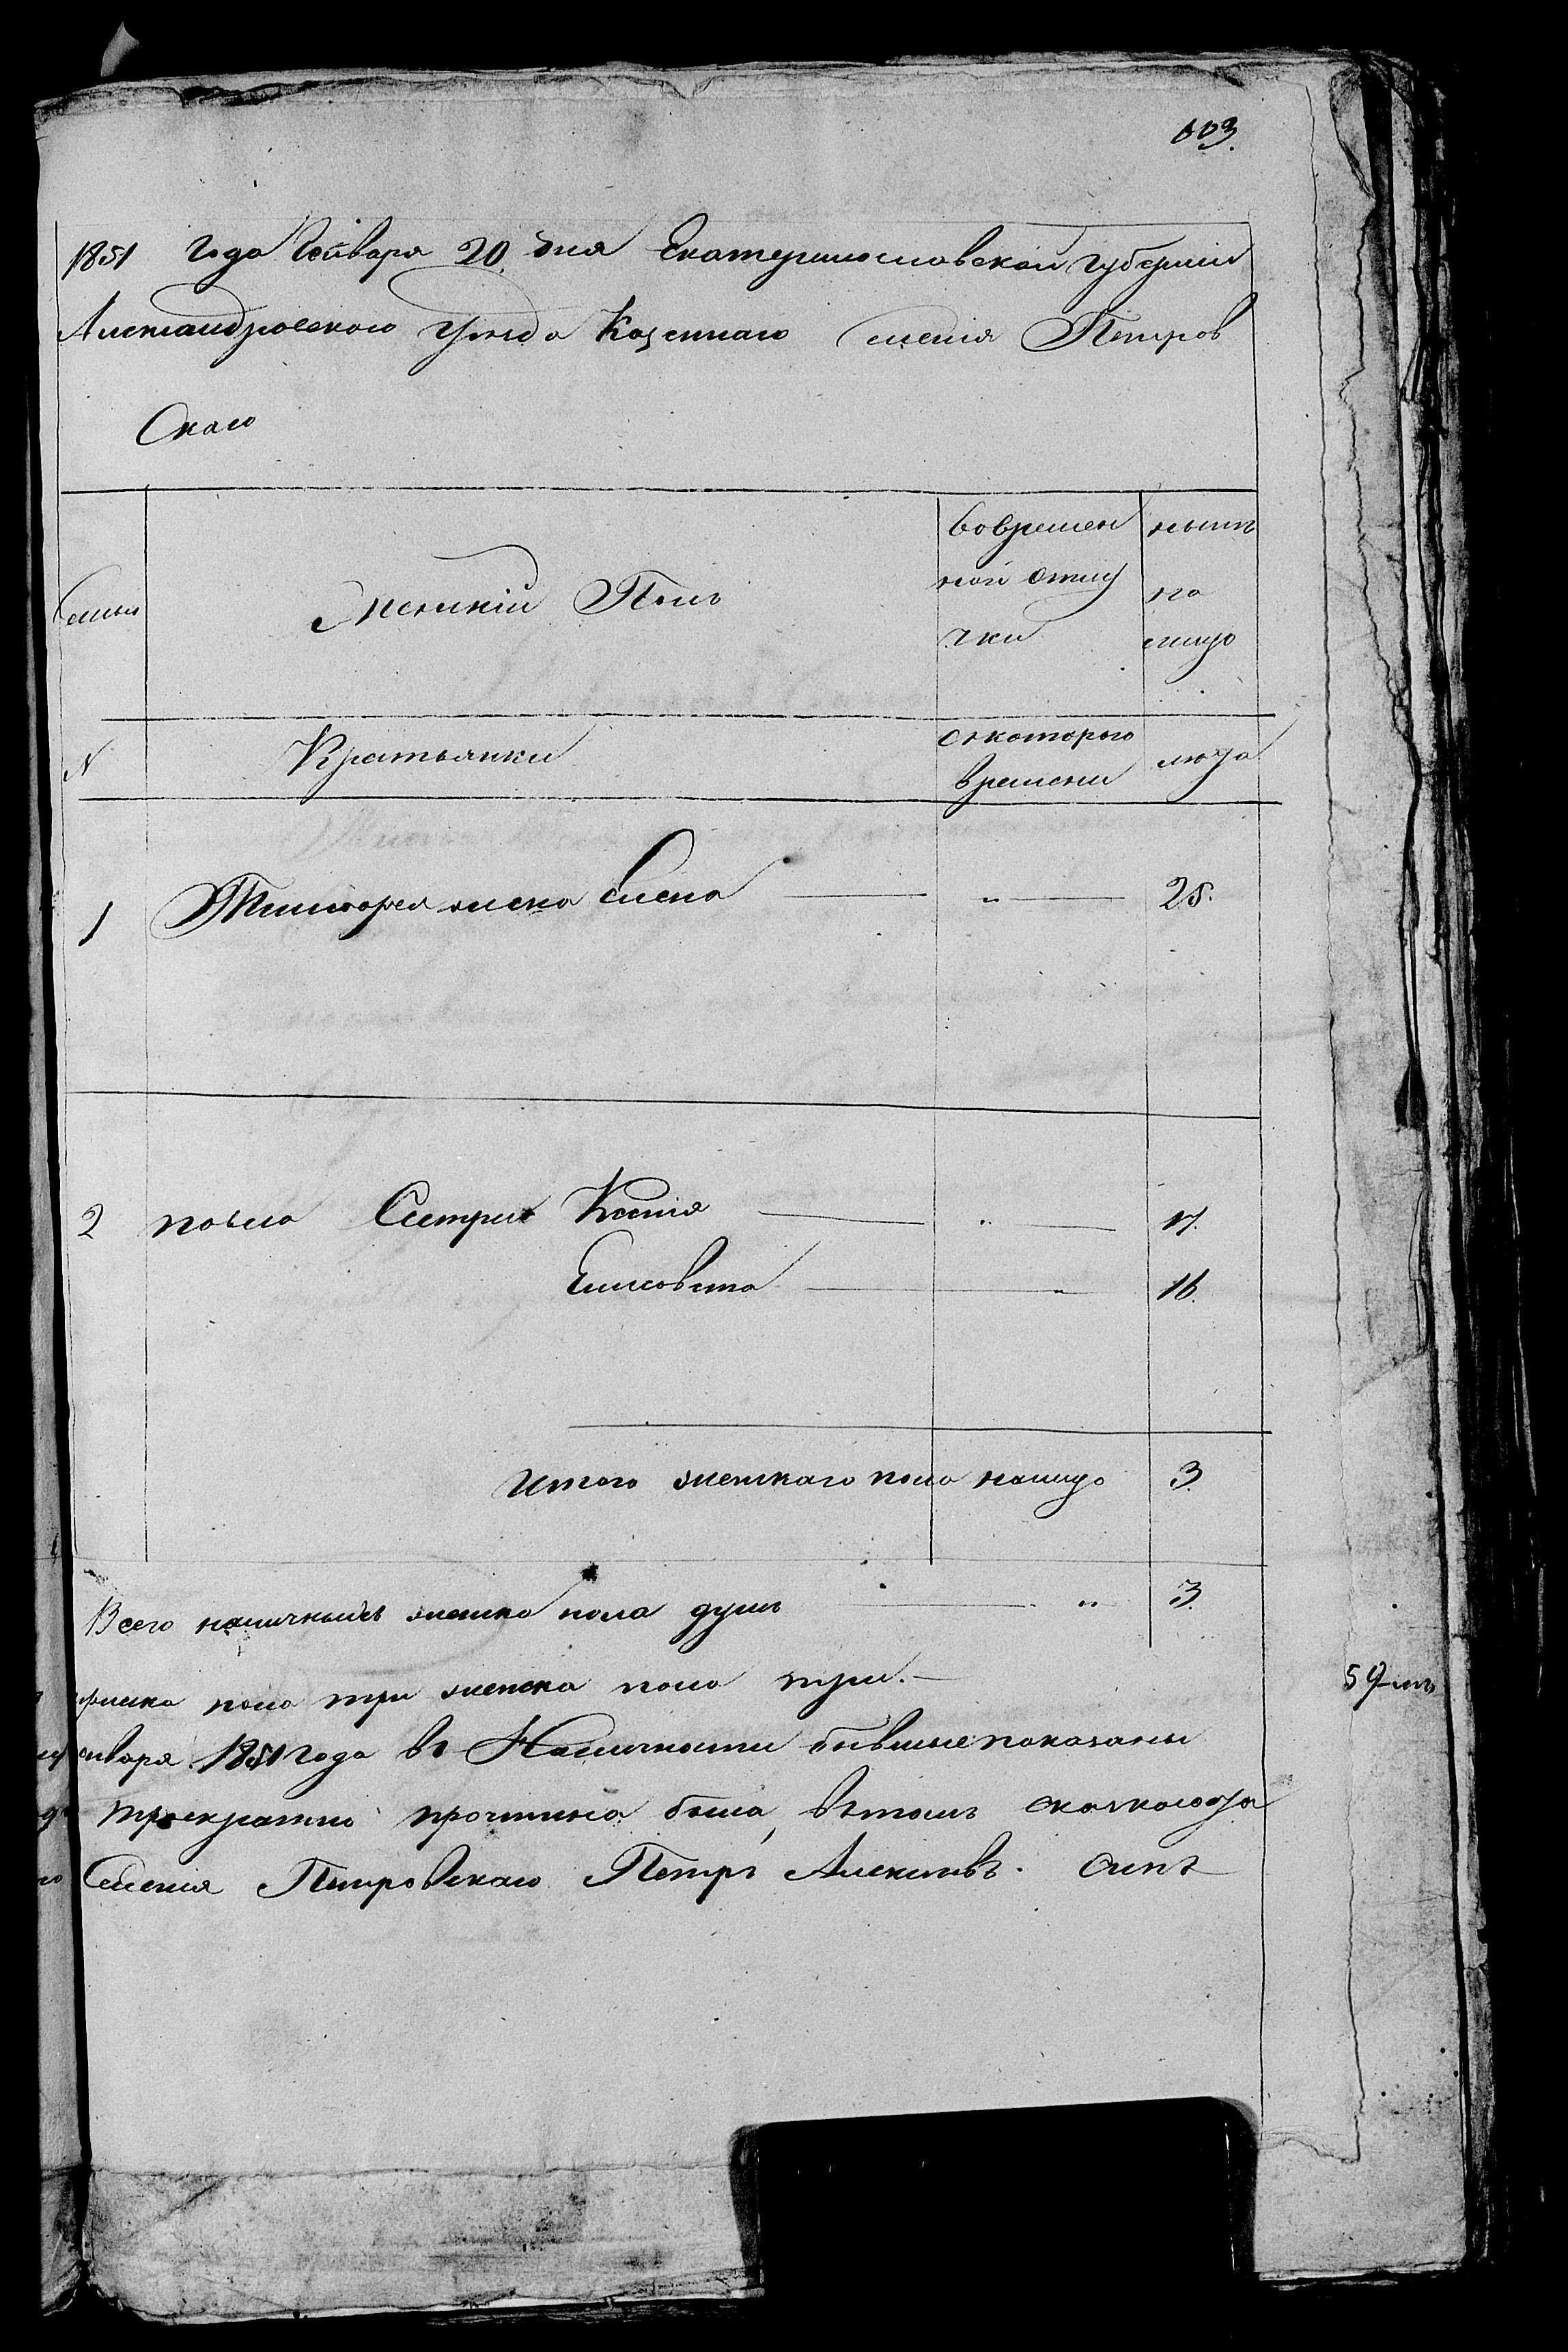 603.
1851 Года Генваря 20 дня Екатеринославской Губернии
Александровского Уезда Казеннаго селенія Петров
скаго
Семьи
Женскій Полъ
Вовремен
ной отлу
чки
нынѣ
на
лицо
N
Крестьянки
Скоторого
времени
лета
1 Тимофея жена Елена " 25.
2 Павла Сестры Ксенія " 17.
Елисовета " 16.
Итого женскаго пола налицо 3.
Всего наличныхъ женска пола душъ " 3.
мужска пола три женска пола три.
Генваря 1851 Года въ Наличности бывшие показаны
троекратно прочтена была, втомъ
Селенія Петровскаго Петръ Алексѣевъ. Сынъ